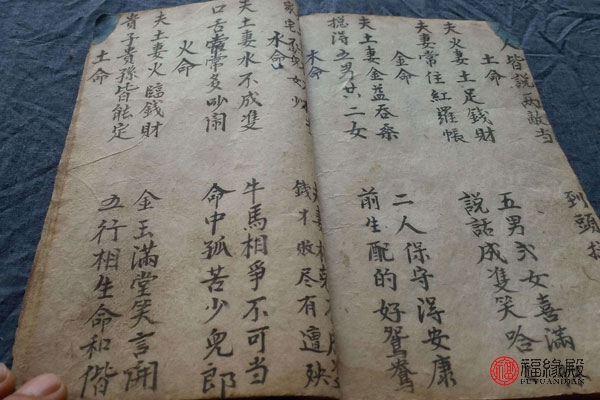 人皆說兩敵当
到頭
土命
夫火妻土足錢財
五男弍女喜滿
夫妻常住紅羅帳
說話成雙笑哈
金命
夫土妻金益吞桑
二人保守得安康
捴得五男廿二女
前生配的好鴛鴦
木命
夫妻相
女少
錢才敗尽有遭殃
水命
夫土妻水不成雙
牛馬相爭不可当
口舌常常多吵鬧
命中孤苦少兒郎
火命
夫土妻火臨錢財
金玉滿堂笑言開
貴子貴孫皆能定
五行相生命和偕
土命
福緣殿
FUYUANDIAN